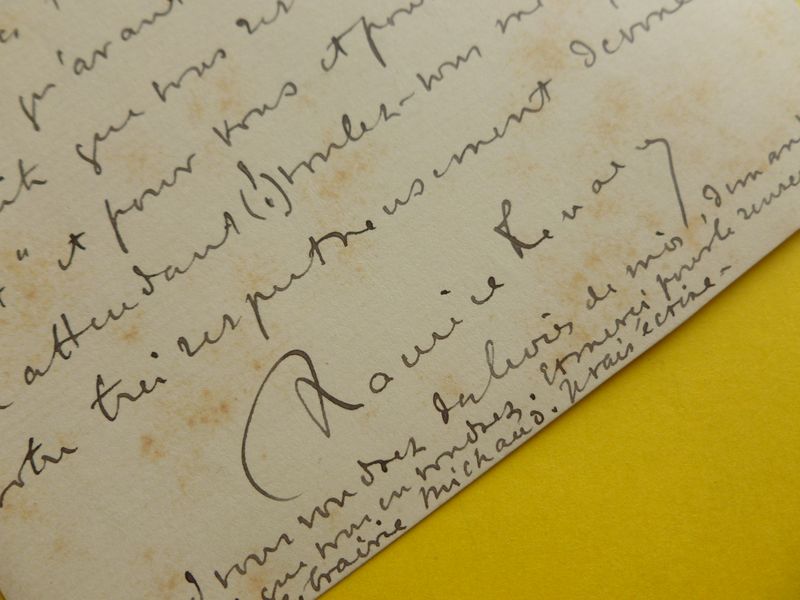 qu'avant
que vous
" et pour vous et pour
attendant (!) voulez-vous me
votre très respectueusement dévoué
Maurice Renard
vous voudrez du bois de mis, demand
que vous en voudrez. Et merci pour le
Librairie Michaud. J'vais écrire -